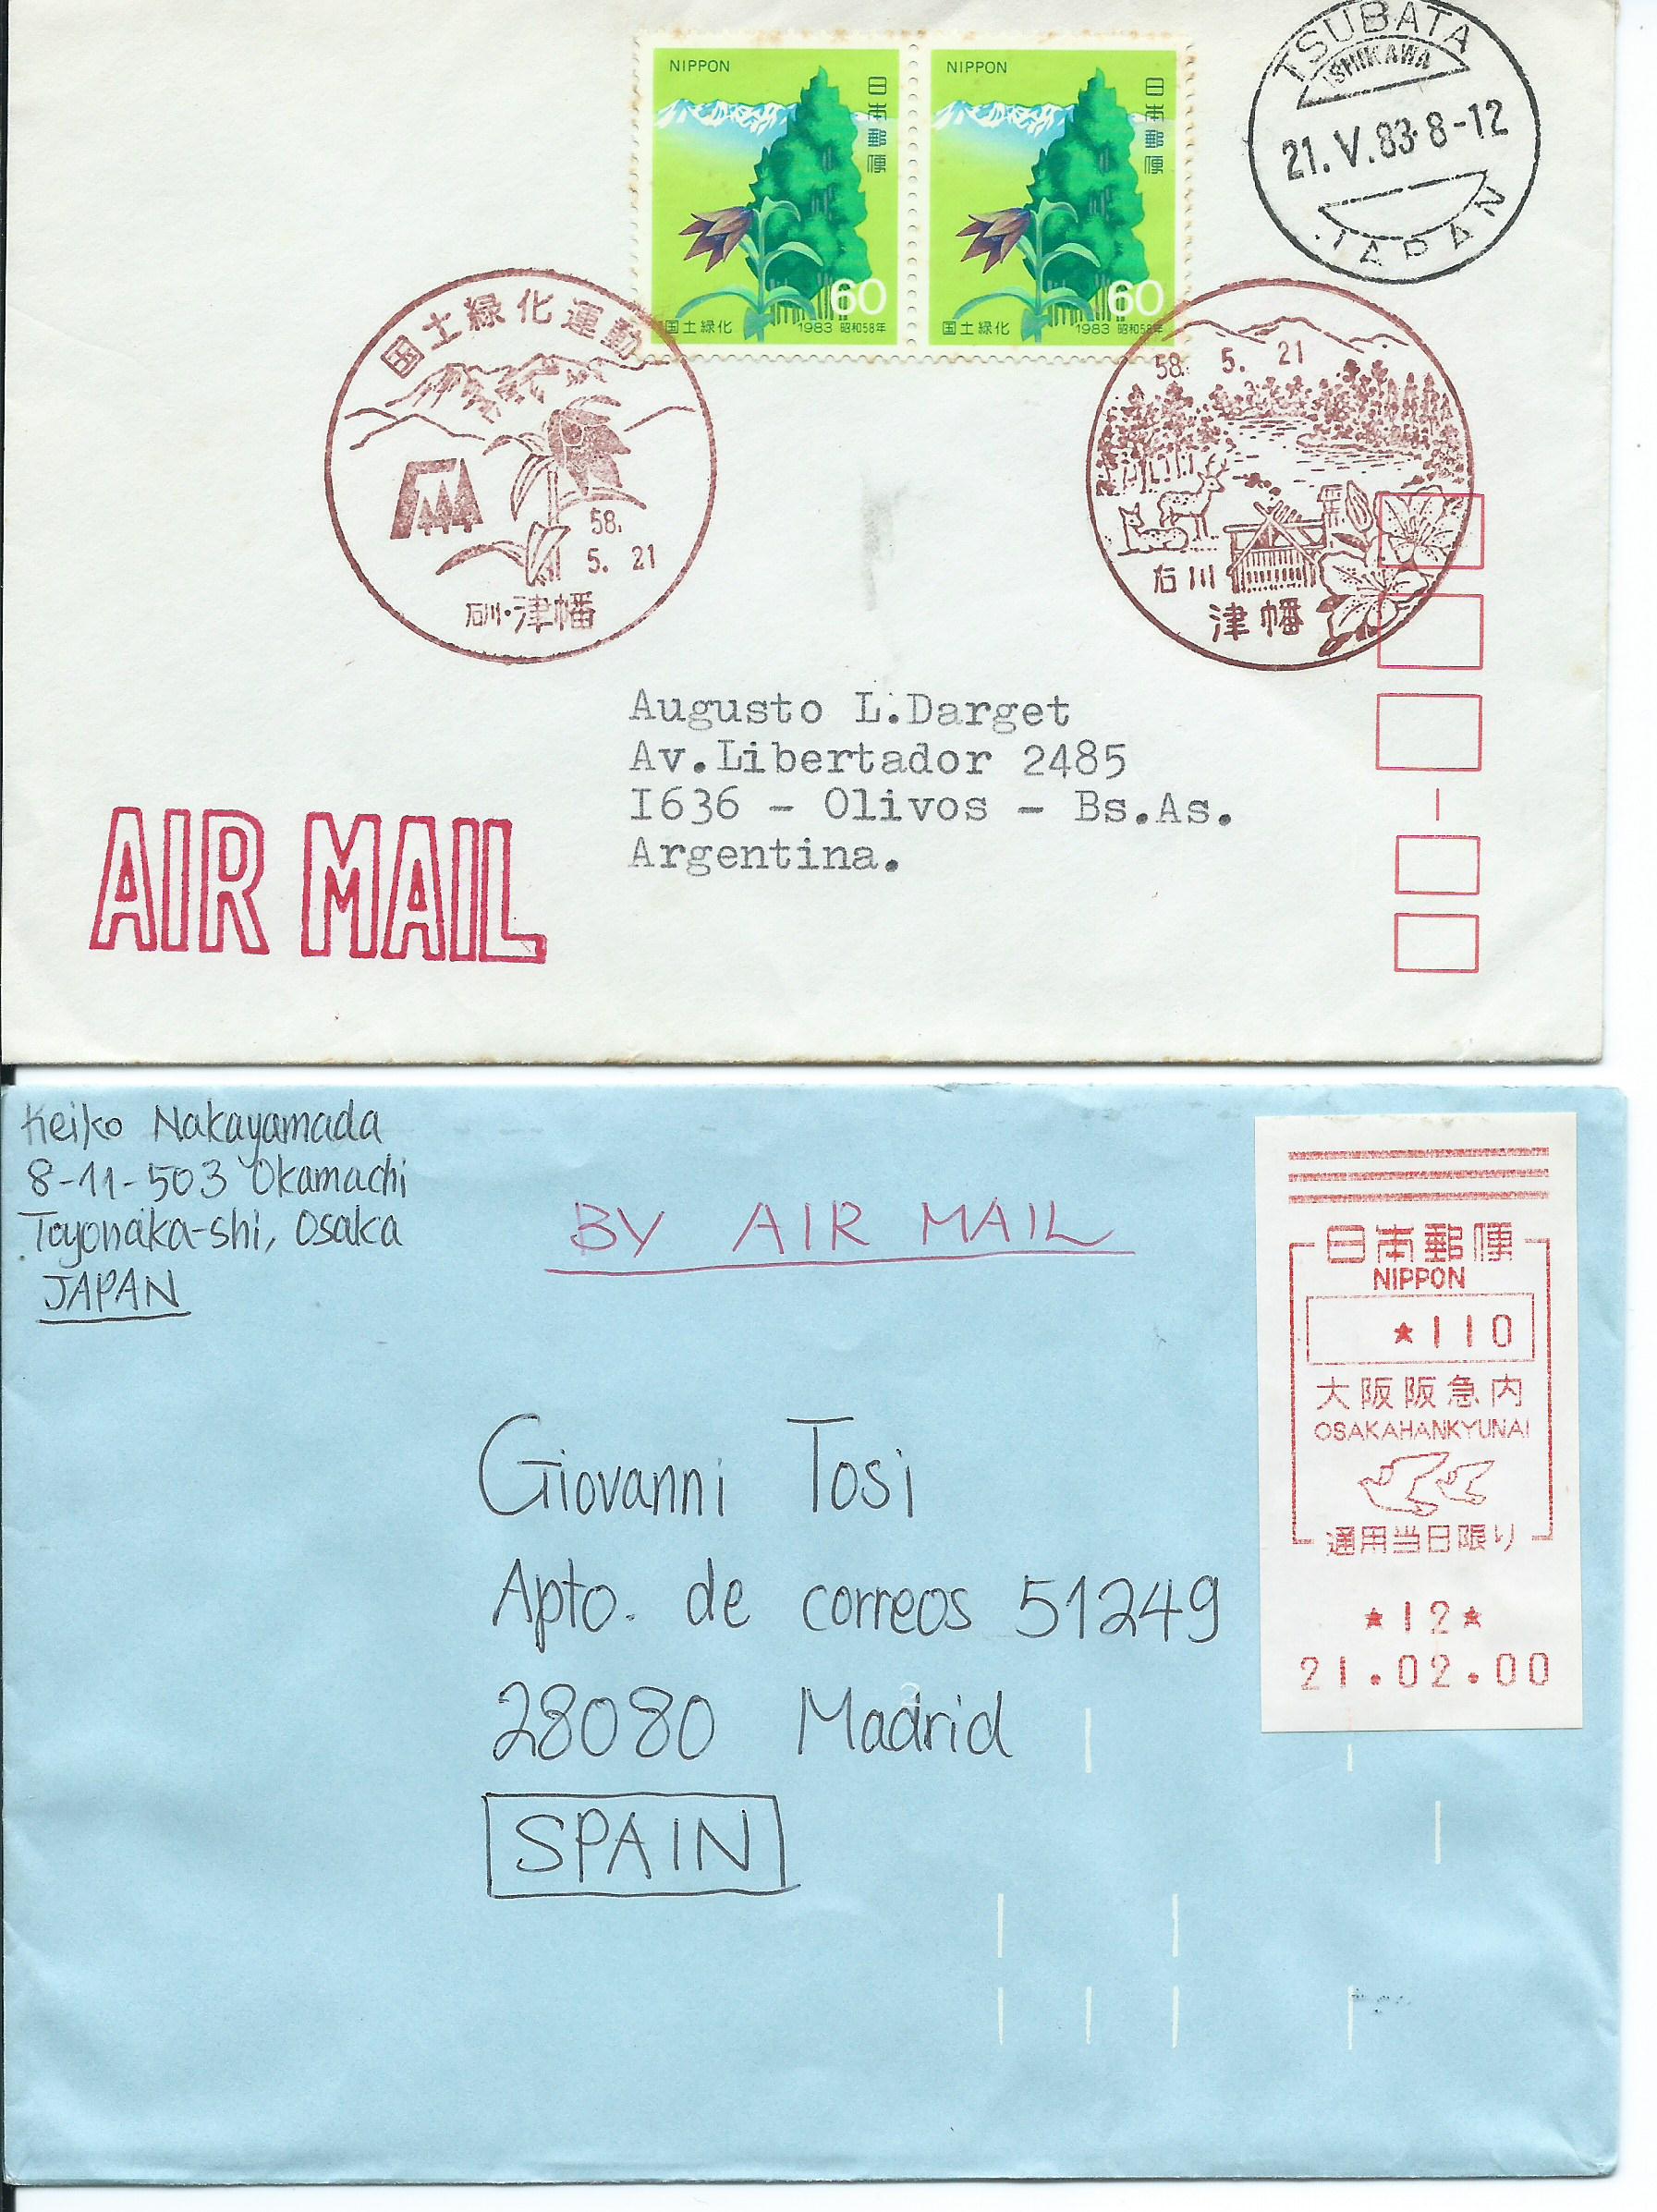 NIPPON
日本郵便
60
国土緑化
1983 昭和58年
NIPPON
日本郵便
60
国土緑化
1983 昭和58年
TSUBATA
ISHIKAWA
21.V.83.8-12
JAPAN
国土緑化運動
58.
5. 21
石川・津幡
58. 5. 21
石川
津幡
Augusto L.Darget
Av.Libertador 2485
I636 - Olivos - Bs.As.
Argentina.
AIR MAIL
Keiko Nakayamada
8-11-503 Okamachi
Toyonaka-shi, Osaka
JAPAN
BY AIR MAIL
日本郵便
NIPPON
★110
大阪阪急内
OSAKAHANKYUNAI
通用当日限り
★12★
21.02.00
Giovanni Tosi
Apto. de correos 51249
28080 Madrid
SPAIN